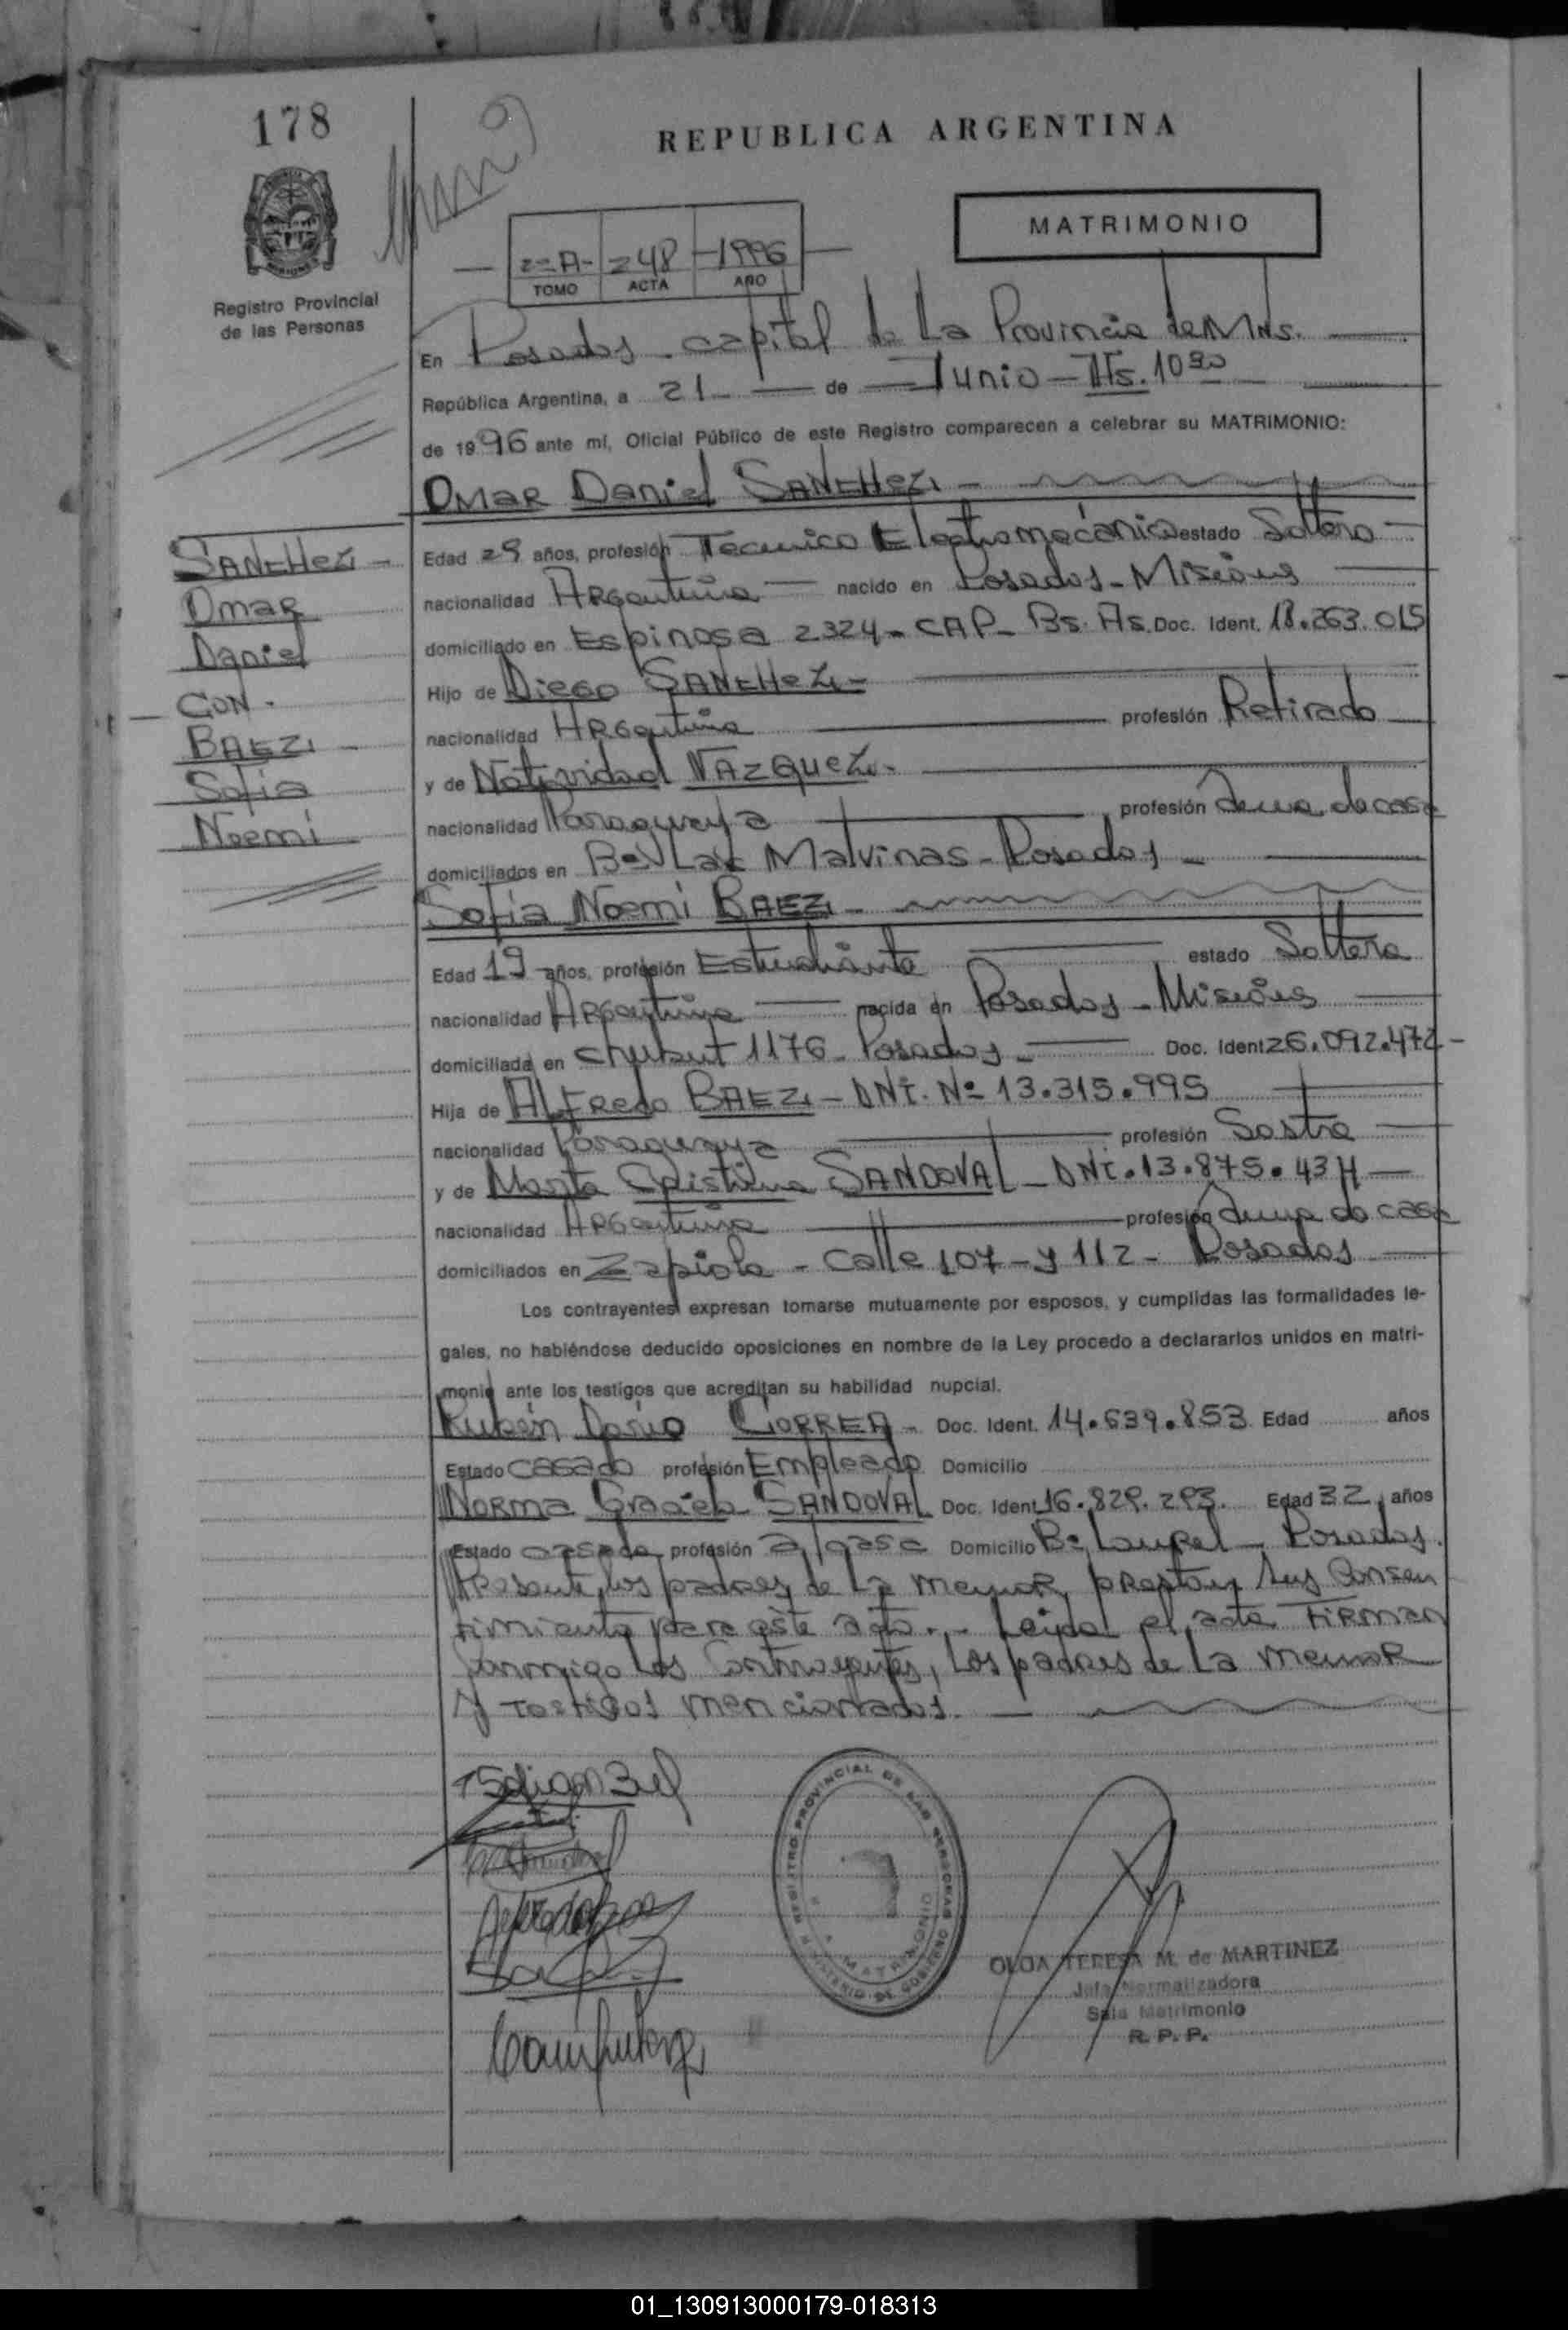 178
REPUBLICA ARGENTINA
MATRIMONIO
Registro Provincial
de las Personas
2=A- 248 -1996
TOMO ACTA AÑO
En Posadas capital de La Provincia de Mns.
República Argentina, a 21 de Junio - Hs. 10 30
de 1996 ante mí, Oficial Público de este Registro comparecen a celebrar su MATRIMONIO:
OMAR Daniel SANCHEZ -
SANCHEZ -
Omar
Daniel
CON.
BAEZ -
Sofia
Noemi
Edad 29 años, profesión Tecnico Electromecánico estado Soltero
nacionalidad Argentina nacido en Posadas - Misiones
domiciliado en Espinosa 2324 - CAP - Bs. As. Doc. Ident. 18.263.015
Hijo de Diego SANCHEZ -
nacionalidad Argentina profesión Retirado
y de Natividad VAZQUEZ -
nacionalidad Paraguaya profesión Ama de casa
domiciliados en Bº Las Malvinas - Posadas -
Sofia Noemi BAEZ -
Edad 19 años, profesión Estudiante estado Soltera
nacionalidad Argentina nacida en Posadas - Misiones
domiciliada en Chubut 1176 - Posadas - Doc. Ident 26.092.472 -
Hija de ALFredo BAEZ - DNI. Nº 13.315.995
nacionalidad Paraguaya profesión Sastre
y de Marta Cristina SANDOVAL - DNI. 13.875.434
nacionalidad Argentina profesión Ama de casa
domiciliados en Zapiola - Calle 107 - y 112 - Posadas
Los contrayentes expresan tomarse mutuamente por esposos, y cumplidas las formalidades le-
gales, no habiéndose deducido oposiciones en nombre de la Ley procedo a declararlos unidos en matri-
monio ante los testigos que acreditan su habilidad nupcial.
Rubén Dario CORREA - Doc. Ident. 14.639.853 Edad años
Estado casado profesión Empleado Domicilio
Norma Graciela SANDOVAL Doc. Ident 16.829.293. Edad 32 años
Estado casada profesión a/casa Domicilio Bº Laurel - Posadas.
Presente los padres de La menor prestan sus Consen
timiento para este acto. - Leida el acta FIRMAN
Conmigo Los Contrayentes, Los padres de La menor
y testigos mencionados. -
REGISTRO PROVINCIAL DE LAS PERSONAS
MINISTERIO DE GOBIERNO
MATRIMONIO
OLGA TERESA M. de MARTINEZ
Jefa Normalizadora
Sala Matrimonio
R. P. P.
01_130913000179-018313